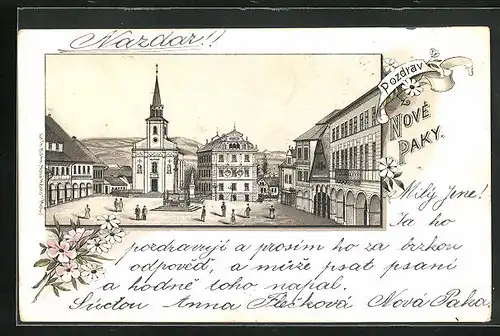 Nazdar!!
Pozdrav
z
NOVÉ
PAKY.
Milý Jene!
Ja ho
pozdravuji a prosím ho za brzkou
odpověď, a může psat psaní
a hodně toho napal.
Súctou Anna Plešková Nová Paka.